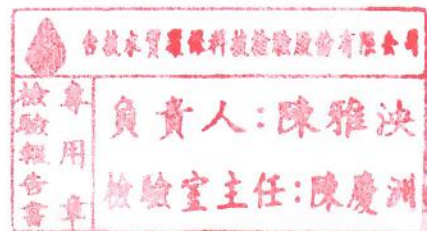 台技水質科技檢驗股份有限公司
檢驗報告書
專用章
負責人:陳雅泱
檢驗室主任:陳慶洲